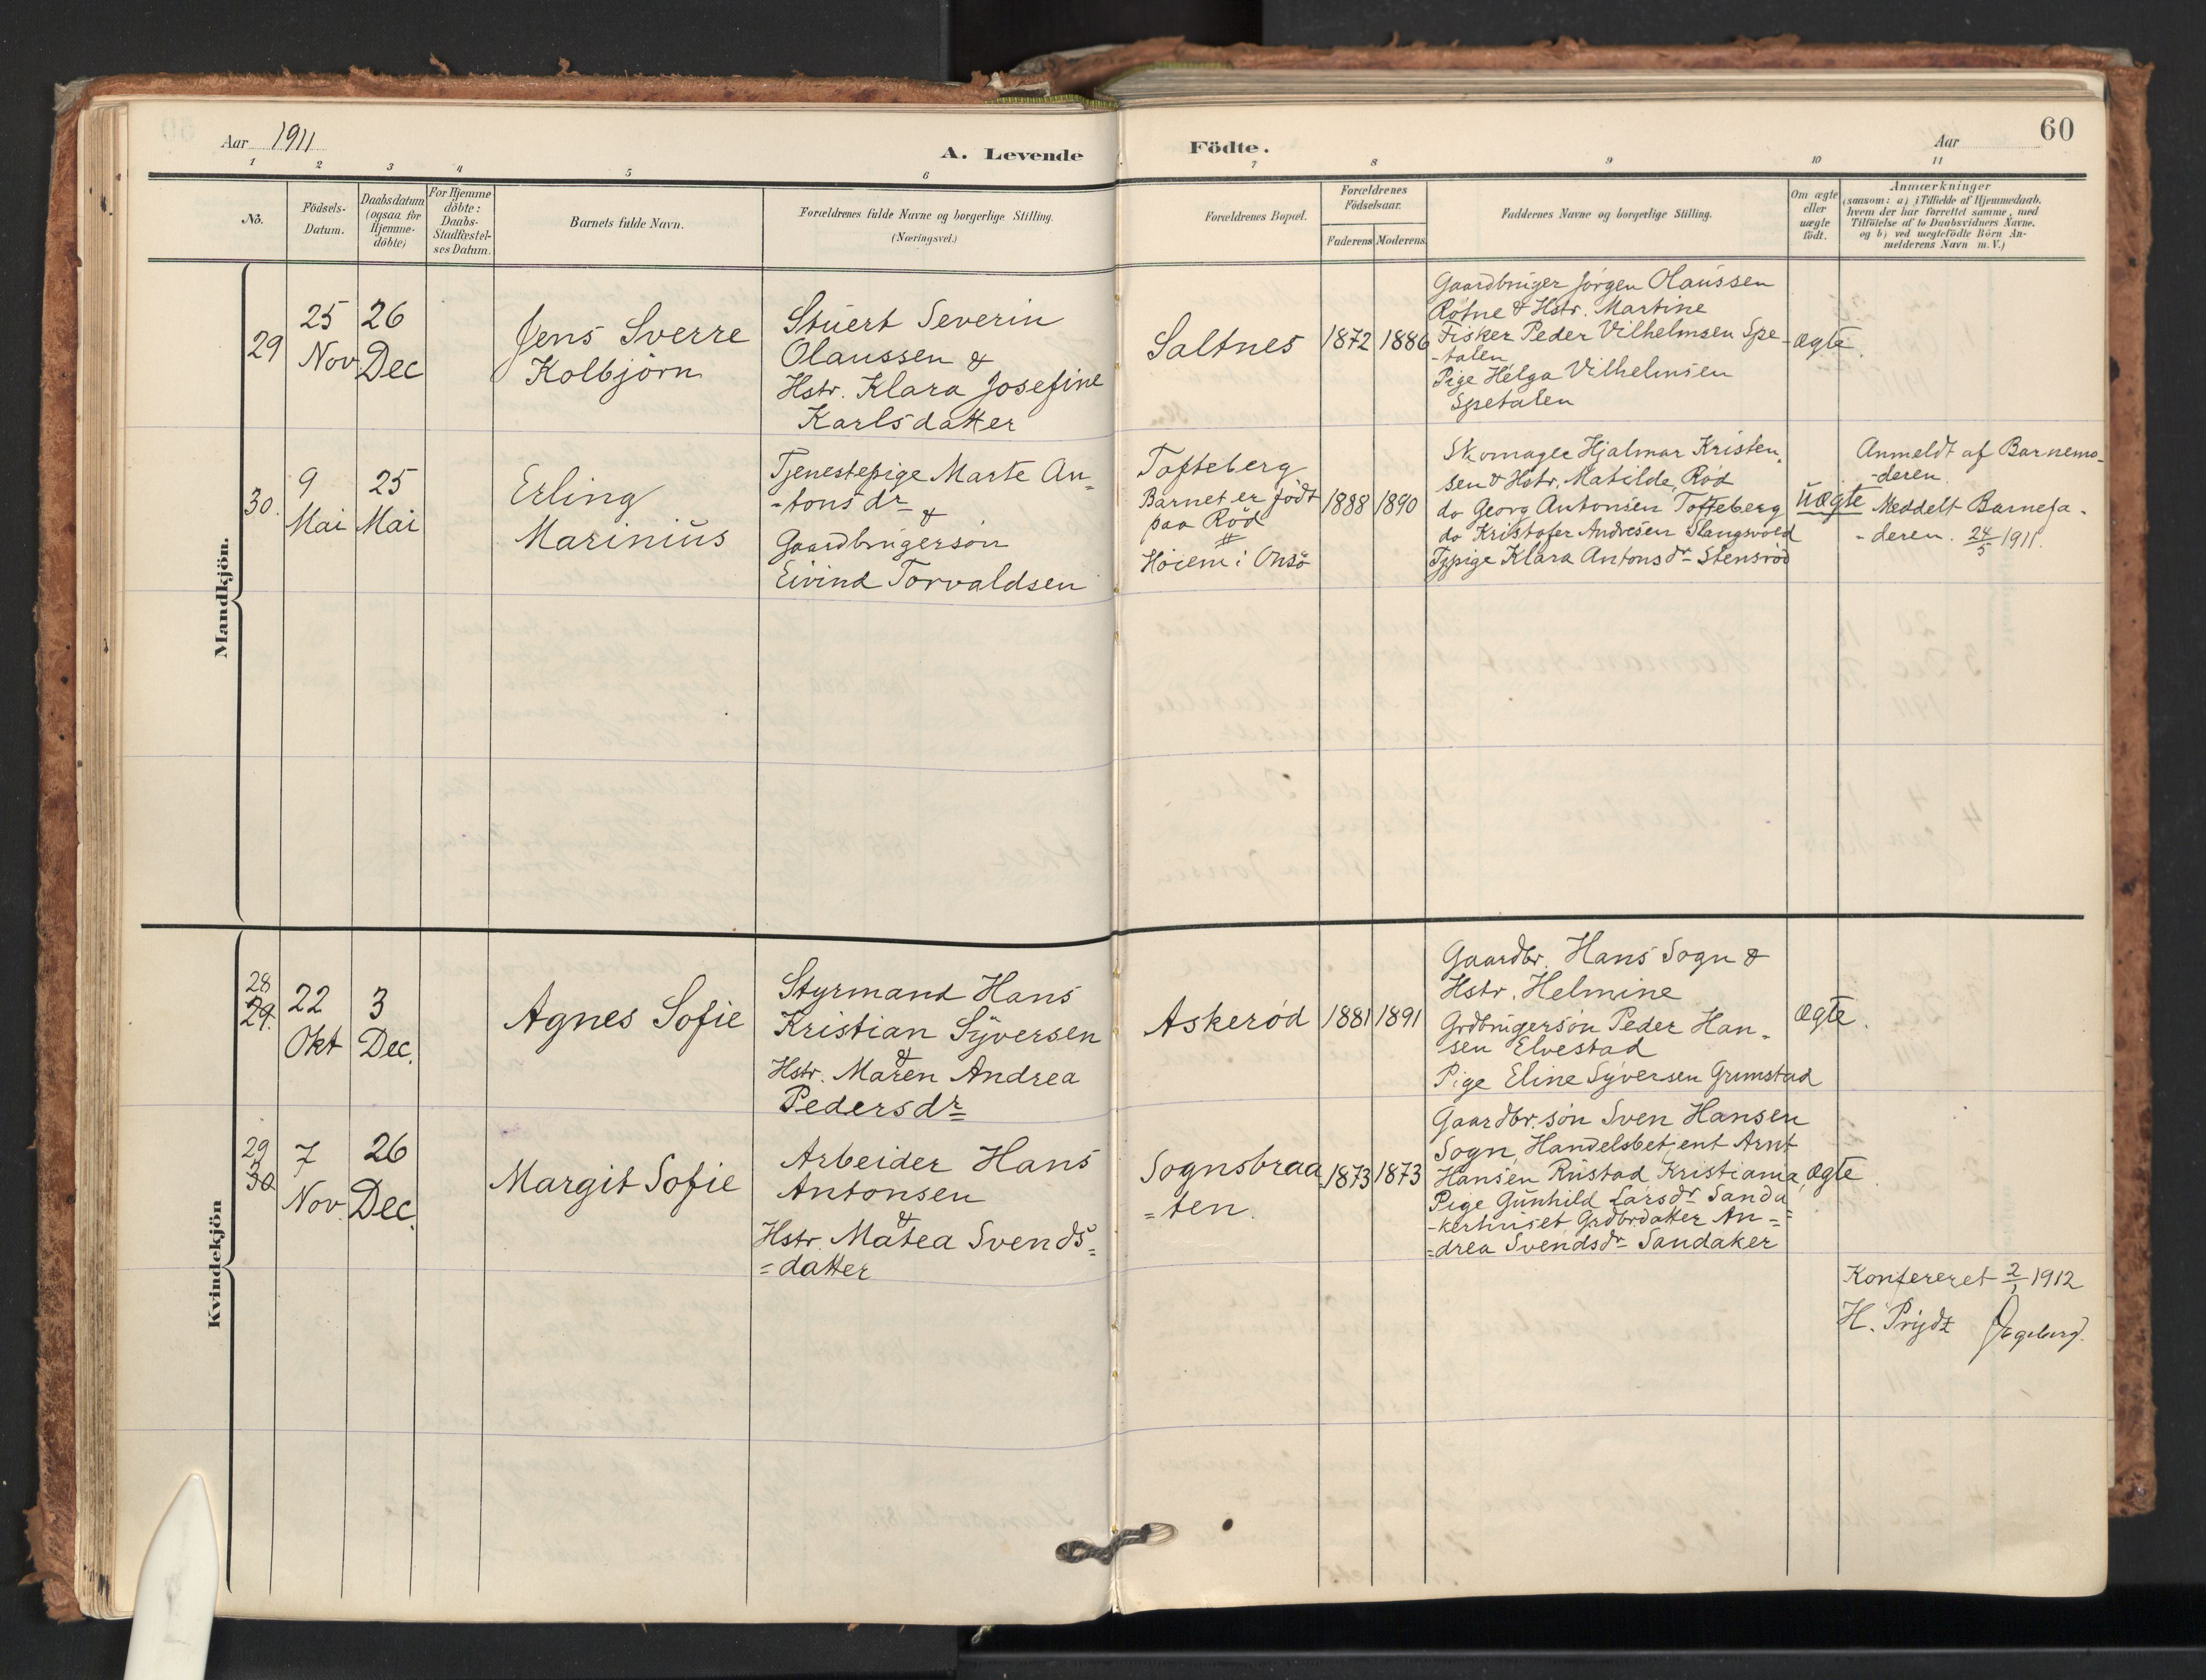 Aar 1911
A. Levende Födte.
Aar
60
1 2 3 4 5 6 7 8 9 10 11
No.
Födsels-
Datum.
Daabsdatum
(ogsaa for
Hjemme-
döbte)
For Hjemme
döbte:
Daabs-
Stadfæstel-
ses Datum.
Barnets fulde Navn.
Forældrenes fulde Navne og borgerlige Stilling.
(Næringsvei.)
Forældrenes Bopæl.
Forældrenes
Födselsaar.
Faderens Moderens
Faddernes Navne og borgerlige Stilling.
Om ægte
eller
uægte
födt.
Anmærkninger
(saasom: a) i Tilfælde af Hjemmedaab,
hvem der har forrettet samme, med
Tilföielse af to Daabsvidners Navne.
og b) ved uægtefödte Börn An-
melderens Navn m. V.)
Mandkjön.
29
25
Nov
26
Dec
Jens Sverre
Kolbjörn
Stuert Severin
Olaussen &
Hstr. Klara Josefine
Karlsdatter
Saltnes
1872
1886
Gaardbruger Jörgen Olaussen
Röfne & Hstr. Martine
Fisker Peder Vilhelmsen Spe-
-talen
Pige Helga Vilhelmsen
Spetalen
Ægte.
30.
9
Mai
25
Mai
Erling
Marinius
Tjenestepige Marte An-
-tonsdr
&
Gaardbrugersön
Eivind Torvaldsen
Tofteberg
Barnet er födt
paa Röd
Höiem i Onsö
1888
1890
Skomager Hjalmar Kristen-
sen & Hstr. Matilde, Röd
do Georg Antonsen Tofteberg
do Kristofer Andresen Slangsvold
Tjpige Klara Antonsdr Stensröd
Uægte
Anmeldt af Barnemo-
-deren
Meddelt Barnefa-
-deren. 24/5 1911.
Kvindekjön
28
29.
22
Okt
3
Dec.
Agnes Sofie
Styrmand Hans
Kristian Syversen
&
Hstr. Maren Andrea
Pedersdr
Askeröd
1881
1891
Gaardbr. Hans Sogn &
Hstr. Helmine
Grdbrugersön Peder Han-
sen Elvestad
Pige Eline Syversen Grimstad
Ægte.
29
30
7
Nov.
26
Dec.
Margit Sofie
Arbeider Hans
Antonsen
&
Hstr. Matea Svends-
=datter
Sognsbraa
=ten.
1873
1873
Gaardbr.sön Sven Hansen
Sogn, Handelsbetjent Arnt
Hansen Rustad Kristiania,
Pige Gunhild Larsdr Sanda
-kerhuset Grdbrdatter An=
=drea Svendsdr Sandaker
Ægte.
Konfereret 2/1 1912
H. Prydz